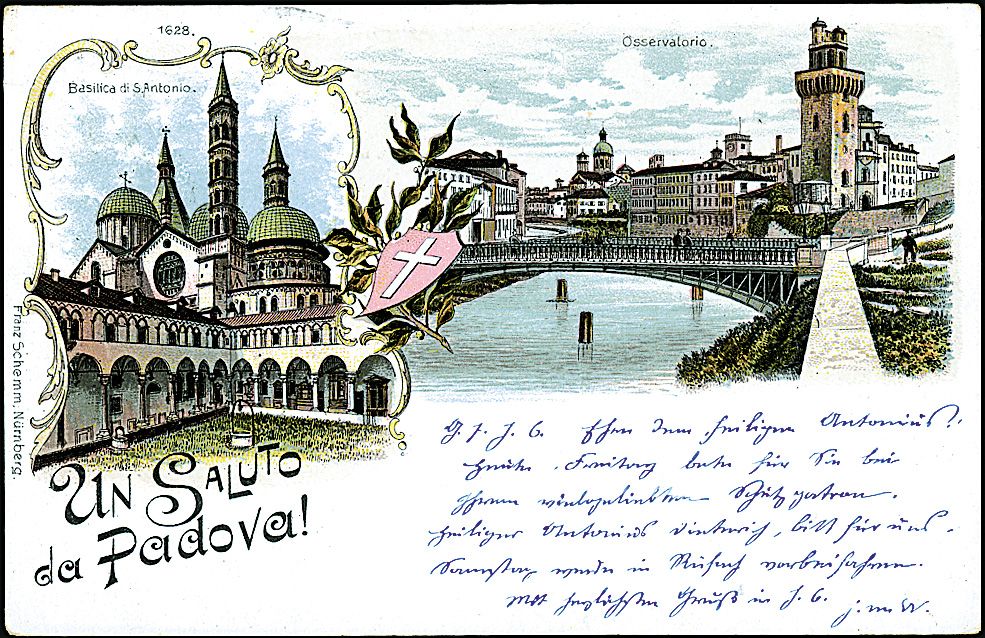 1628.
Basilica di S. Antonio.
Osservatorio.
Franz Schemm, Nürnberg.
Un Saluto
da Padova!
G. J. J. C. Ehre dem heiligen Antonius!
Heute, Freitag bete für Sie bei
Ihrem Schutzpatron.
Heiliger Antonius bitt für uns.
Samstag werde in vorbeifahren.
Mit herzlichsten Gruß in J. C.